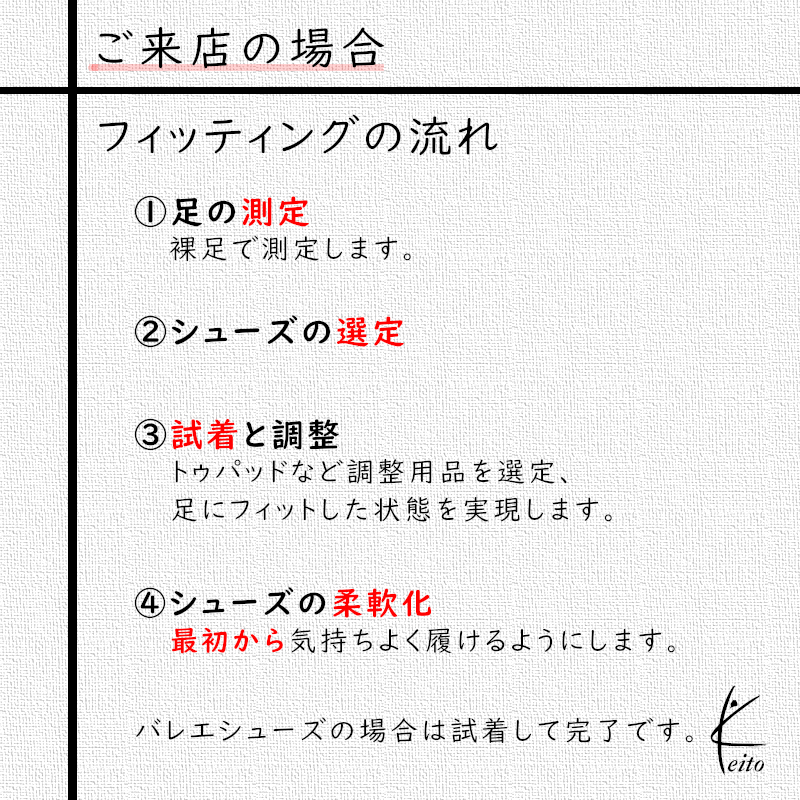 ご来店の場合
フィッティングの流れ
①足の測定
裸足で測定します。
②シューズの選定
③試着と調整
トゥパッドなど調整用品を選定、
足にフィットした状態を実現します。
④シューズの柔軟化
最初から気持ちよく履けるようにします。
バレエシューズの場合は試着して完了です。
Keito